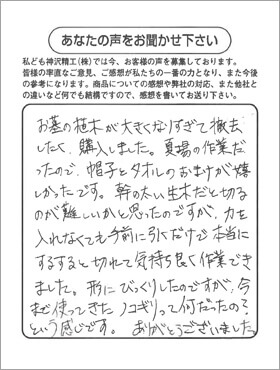 あなたの声をお聞かせ下さい
私ども神沢精工(株)では今、お客様の声を募集しております。
皆様の率直なご意見、ご感想が私たちの一番の力となり、また今後
の参考になります。商品についての感想や弊社の対応、また他社と
の違いなど何でも結構ですので、感想を書いてお送り下さい。
お墓の植木が大きくなりすぎて撤去
したく、購入しました。夏場の作業だ
ったので、帽子とタオルのおまけが嬉
しかったです。幹の太い生木だと切る
のが難しいかと思ったのですが、力を
入れなくても手前に引くだけで本当に
するすると切れて気持ち良く作業でき
ました。形にびっくりしたのですが、今
まで使ってきたノコギリって何だったの?
という感じです。ありがとうございました。